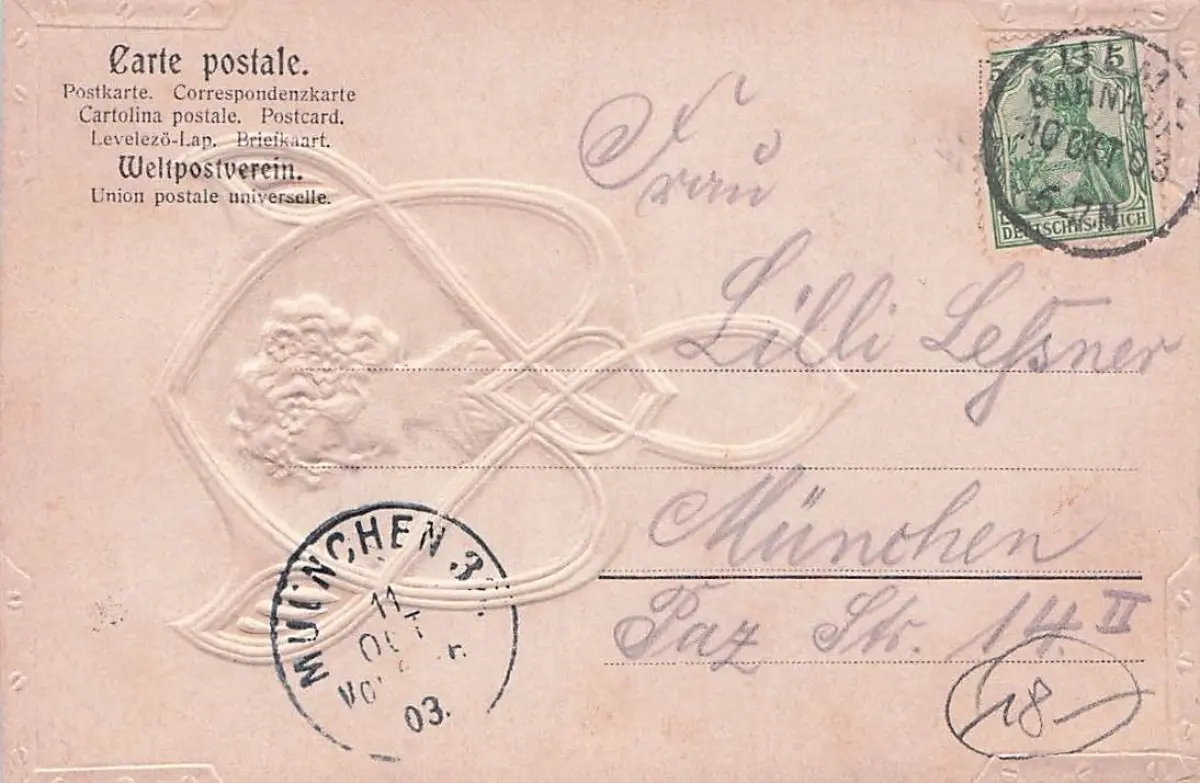 Carte postale.
Postkarte. Correspondenzkarte
Cartolina postale. Postcard.
Levelező-Lap. Briefkaart.
Weltpostverein.
Union postale universelle.
5 5
DEUTSCHES REICH
ULM
BAHNHOF
10 OKT 03
6-7 N
Frau
Lilli Leſsner
München
Paz Str. 14. II
18
MUENCHEN 3
11
OCT
03.